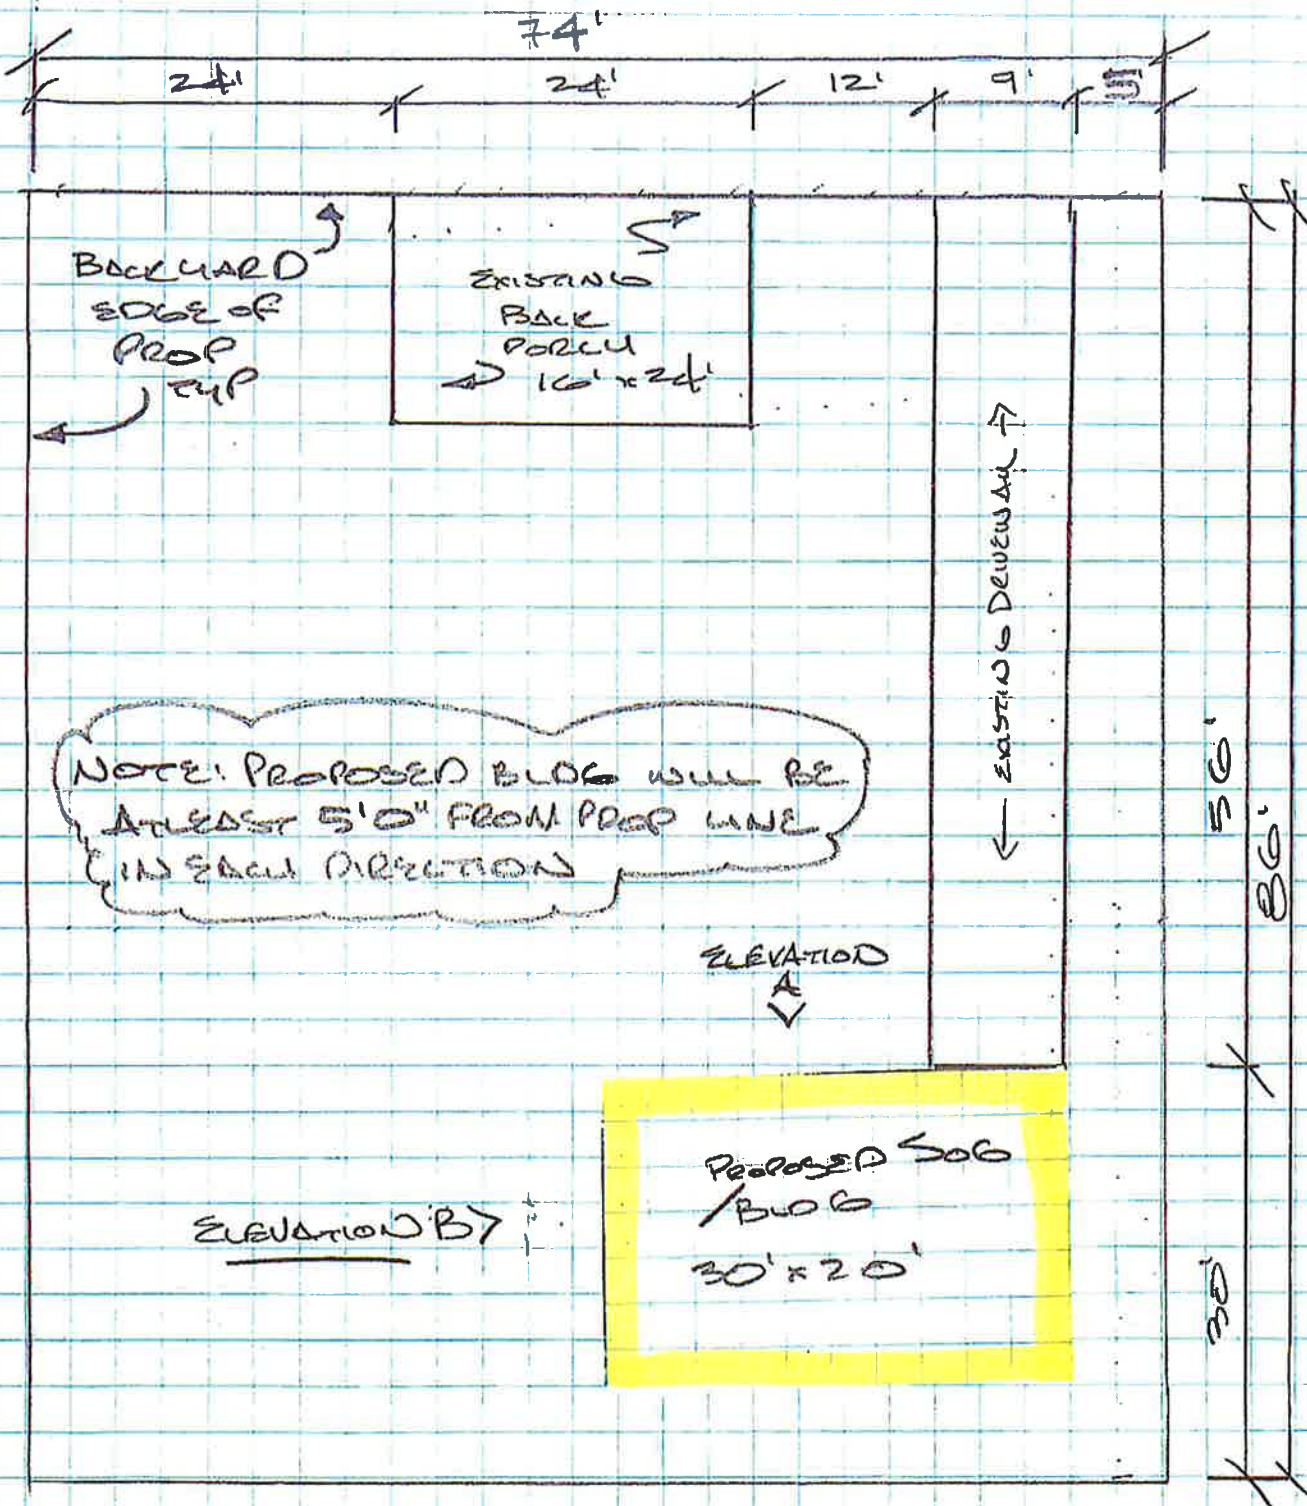 74'
24' 24' 12' 9' 5'
BACKYARD
EDGE OF
PROP
TYP
EXISTING
BACK
PORCH
16' x 24'
← EXISTING DRIVEWAY →
NOTE: PROPOSED BLDG WILL BE
ATLEAST 5'0" FROM PROP LINE
IN EACH DIRECTION
56'
86'
ELEVATION
A
PROPOSED SOG
/BLDG
30' x 20'
ELEVATION B
30'